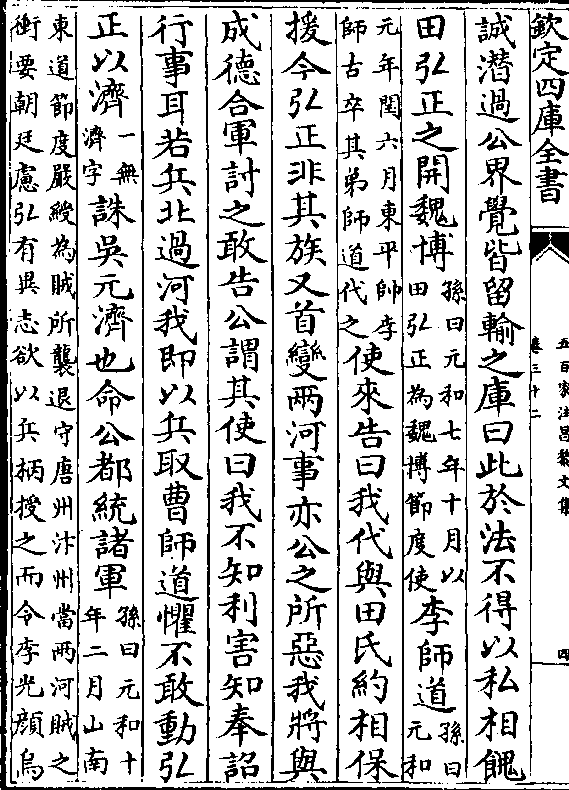 欽定四庫全書
五百家注昌黎文集
卷三十二
四
誠潛過公界覺皆留輸之庫曰此於法不得以私相餽
田弘正之開魏博孫曰元和七年十月以田弘正為魏博節度使李師道孫曰元和
元年閏六月東平帥李師古卒其弟師道代之使來告曰我代與田氏約相保
援今弘正非其族又首變兩河事亦公之所惡我將與
成德合軍討之敢告公謂其使曰我不知利害知奉詔
行事耳若兵北過河我即以兵取曹師道懼不敢動弘
正以濟一無濟字誅吳元濟也命公都統諸軍孫曰元和十年二月山南
東道節度嚴綬為賊所襲退守唐州汴州當兩河賊之
衝要朝廷慮弘有異志欲以兵柄授之而令李光顏烏